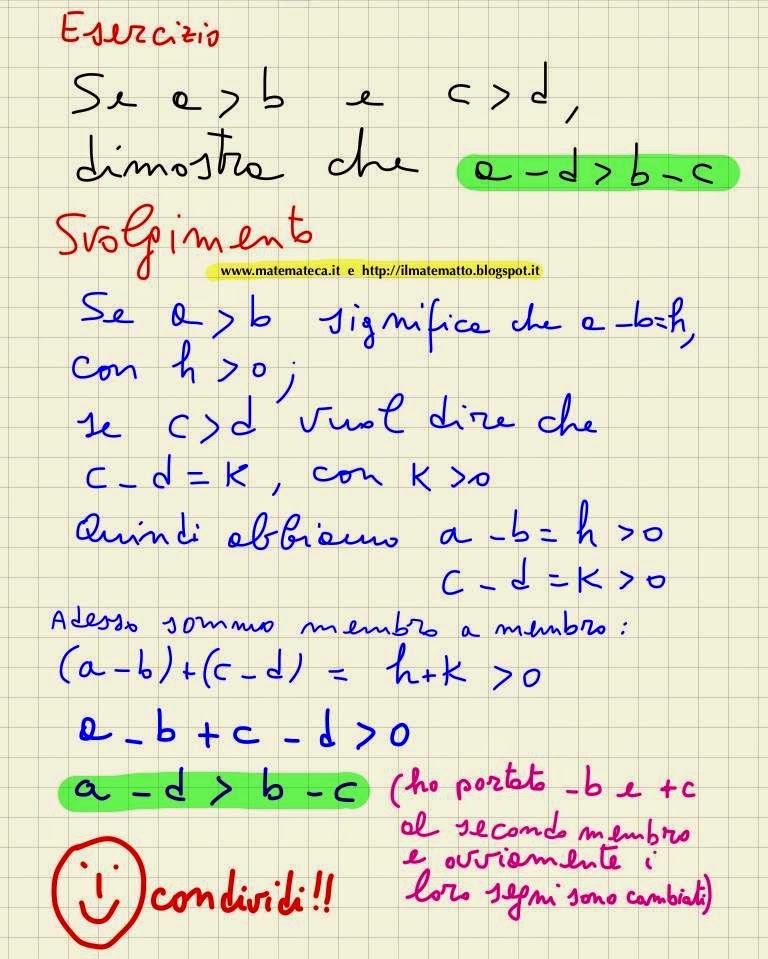 Esercizio
Se a > b e c > d,
dimostra che a - d > b - c
Svolgimento
www.matemateca.it e http://ilmatematto.blogspot.it
Se a > b significa che a - b = h,
con h > 0;
se c > d vuol dire che
c - d = K, con K > 0
Quindi abbiamo a - b = h > 0
c - d = K > 0
Adesso sommo membro a membro:
(a - b) + (c - d) = h + K > 0
a - b + c - d > 0
a - d > b - c (ho portato - b e + c
al secondo membro
e ovviamente i
loro segni sono cambiati)
condividi!!